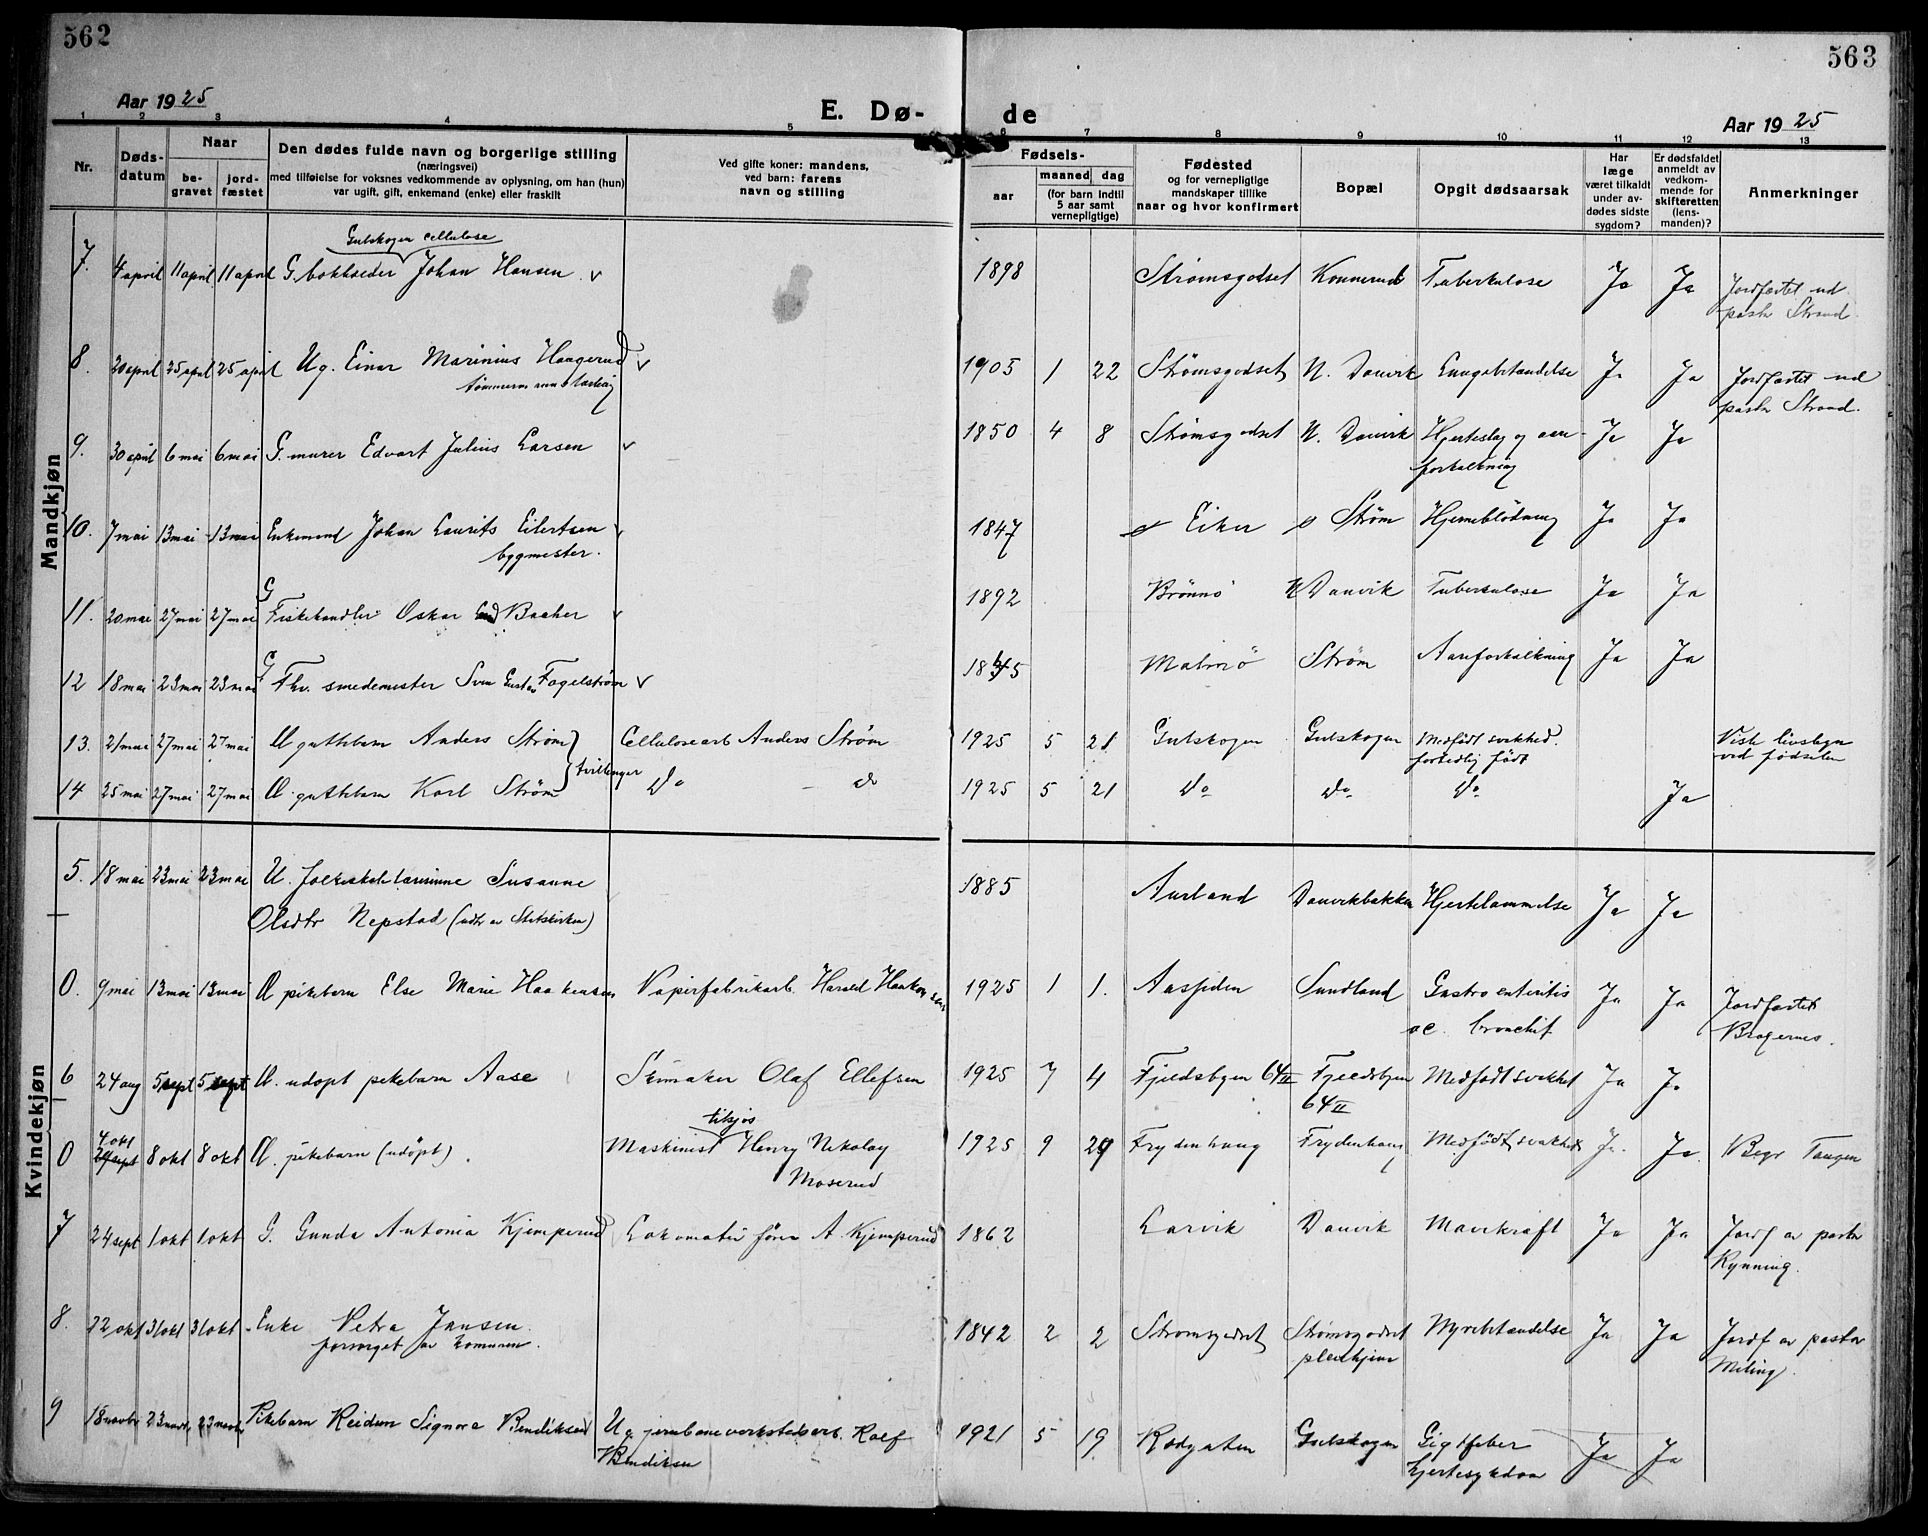 562
563
Aar 1925
E. Dø-
de
Aar 1925
1 2 3 4 5 6 7 8 9 10 11 12 13
Nr.
Døds-
datum
Naar
be-
gravet
jord-
fæstet
Den dødes fulde navn og borgerlige stilling
(næringsvei)
med tilføielse for voksnes vedkommende av oplysning, om han (hun)
var ugift, gift, enkemand (enke) eller fraskilt
Ved gifte koner: mandens,
ved barn: farens
navn og stilling
Fødsels-
aar
maaned dag
(for barn indtil
5 aar samt
vernepligtige)
Fødested
og for vernepligtige
mandskaper tillike
naar og hvor konfirmert
Bopæl
Opgit dødsaarsak
Har
læge
været tilkaldt
under av-
dødes sidste
sygdom?
Er dødsfaldet
anmeldt av
vedkom-
mende for
skifteretten
(lens-
manden)?
Anmerkninger
Mandkjøn
Gulskogen cellulose
7. 4 april 11 april 11 april G. bokholder Johan Hansen v 1898 Strømsgodset Konnerud Tuberkulose Ja Ja Jordfæstet ved
pastor Strand.
8. 20 april 25 april 25 april Ug. Einar Marinius Haagerud v 1905 1 22 Strømsgodset N. Danvik Lungebetændelse Ja Ja Jordfæstet ved
tømmerm
pastor Strand.
9. 30 april 6 mai 6 mai G. murer Edvart Julius Larsen v 1850 4 8 Strømsgodset N. Danvik Hjerteslag og aare-
forkalkning Ja Ja
10. 7 mai 13 mai 13 mai Enkemand Johan Laurits Eilertsen v 1847 Eiker Strøm Hjerneblødning Ja Ja
bygmester.
G
11. 20 mai 27 mai 27 mai Fiskehandler Oskar Baaher v 1892 Brønnø N Danvik Tuberkulose Ja Ja
G
12 18 mai 23 mai 23 mai Fhv. smedemester Sven Gustav Fagelstrøm v 1845 Malmø Strøm Aareforkalkning Ja Ja
13. 21 mai 27 mai 27 mai Æ guttebarn Anders Strøm Cellulosearb Anders Strøm 1925 5 21 Gulskogen Gulskogen Medfødt svakhed.
fortidlig født Viste livstegn
ved fødselen
tvillinger
14 25 mai 27 mai 27 mai Æ guttebarn Karl Strøm Do - do 1925 5 21 Do Do Do Ja
Kvindekjøn
5. 18 mai 23 mai 23 mai U. folkeskolelærerinne Susanne 1885 Aurland Danvikbakken Hjertelammelse Ja Ja
Olsdtr Nepstad (udtr av Statskirken)
0. 9 mai 13 mai 13 mai Æ pikebarn Else Marie Haakensen Papirfabrikarb. Harald Haakensen 1925 1 1. Aassiden Sundland Gastroenteritis
ac. bronchit Ja Ja Jordfæstet
Bragernes.
6 24 aug 5 sept 5 sept Æ. udøpt pikebarn Aase Skomaker Olaf Ellefsen 1925 7 4 Fjeldsbyen 64 II Fjeldsbyen
64 II Medfødt svakhet Ja Ja
0 4 okt
29 sept 8 okt 8 okt Æ. pikebarn (udøpt). Maskinist Henry Nikolay
Moserud 1925 9 29 Frydenhaug Frydenhaug Medfødt svakhet Ja. Ja Begr Tangen
7 24 sept 1 okt 1 okt G. Gunda Antonia Kjemperud Lokomotivfører A. Kjemperud 1862 Larvik Danvik Mavekræft Ja Ja Jordf av pastor
Rynning.
8. 22 okt 31 okt 31 okt Enke Petra Jansen. 1842 2 2 Strømsgodset Strømsgodset
pleiehjem Nyrebetændelse Ja Ja Jordf av pastor
Meling.
forsørget av komunen.
9 18 novbr 23 novbr 23 novbr Pikebarn Reidun Signora Bendiksen Ug. jernbaneverkstedsarb. Rolf
Bendiksen 1921 5 19 Rødgaten Gulskogen Gigtfeber
hjertesykdom Ja Ja